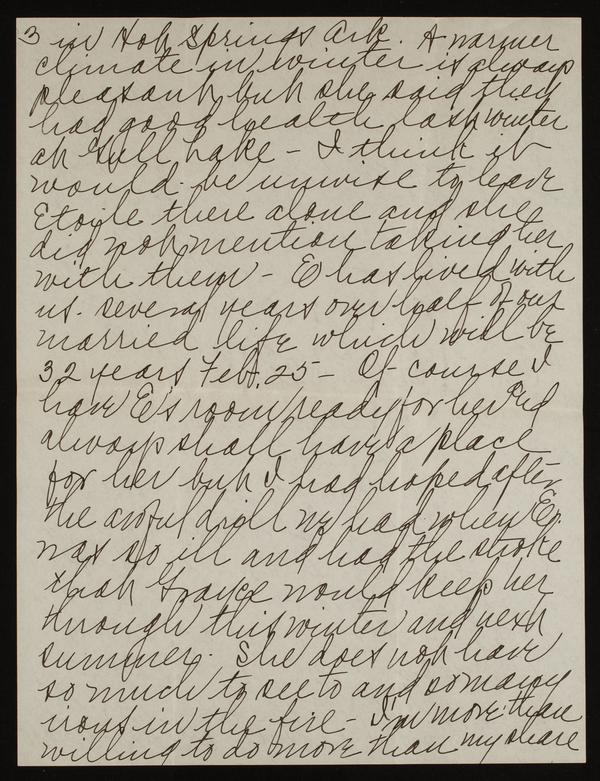 3 in Hot Springs Ark. A warmer
climate in winter is always
pleasant but she said they
had good health last winter
at Gull Lake - I think it
would be unwise to leave
Etoile there alone and she
did not mention taking her
with them - E has lived with
us several years over half of our
married life which will be
32 years, Feb. 25 - Of course I
have E's room ready for her and
always shall have a place
for her but I had hoped after
the awful drill we had when E.
was so ill and had the stroke
that Grayce would keep her
through this winter and next
summer. She does not have
so much to see to and so many
irons in the fire - I'm more than
willing to do more than my share